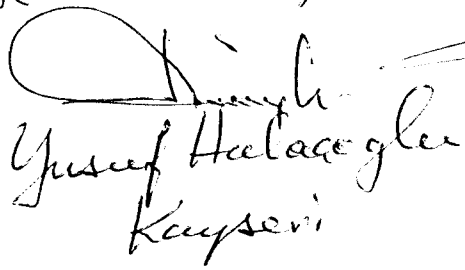 Yusuf Halaçoğlu
Kayseri